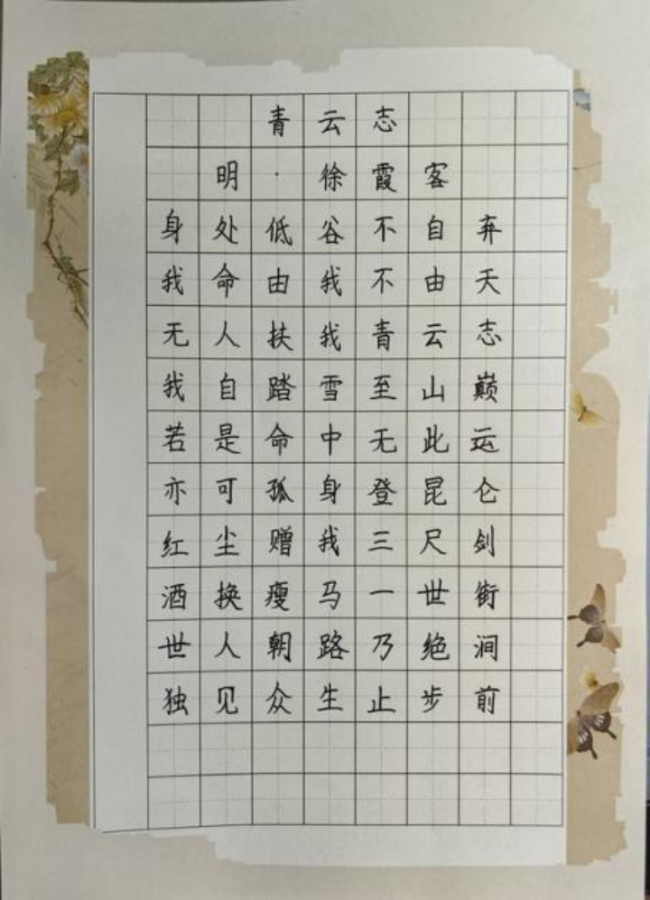 青云志
明·徐霞客
身处低谷不自弃
我命由我不由天
无人扶我青云志
我自踏雪至山巅
若是命中无此运
亦可孤身登昆仑
红尘赠我三尺剑
酒换瘦马一世街
世人朝路乃绝涧
独见众生止步前